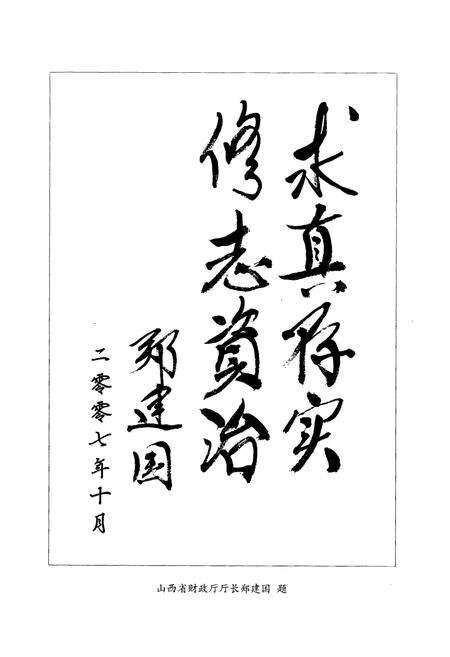 求真存实
修志资治
郑建国
二零零七年十月
山西省财政厅厅长郑建国 题